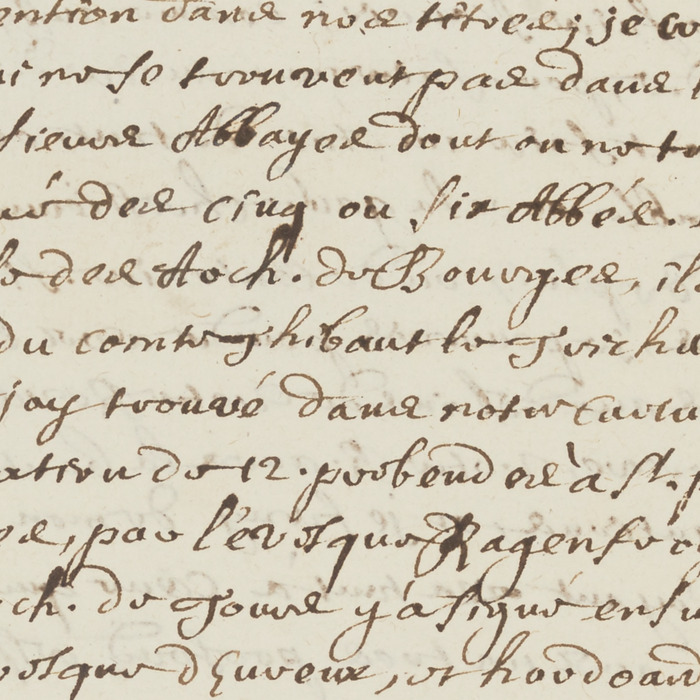 ention dans nos titres; je co
ui ne se trouvent pas dans
sieurs Abbayes dont on ne tr
ué des cinq ou six Abbés.
le des Arch. de Bourges, il
du comte Thibaut le Triche
j'ay trouvé dans notre Cartu
ation de 12. prebendes à St. p
es, par l'evesque Ragenfr
ch. de Tours y a signé ensu
vesque d'Evreux, et hardouin